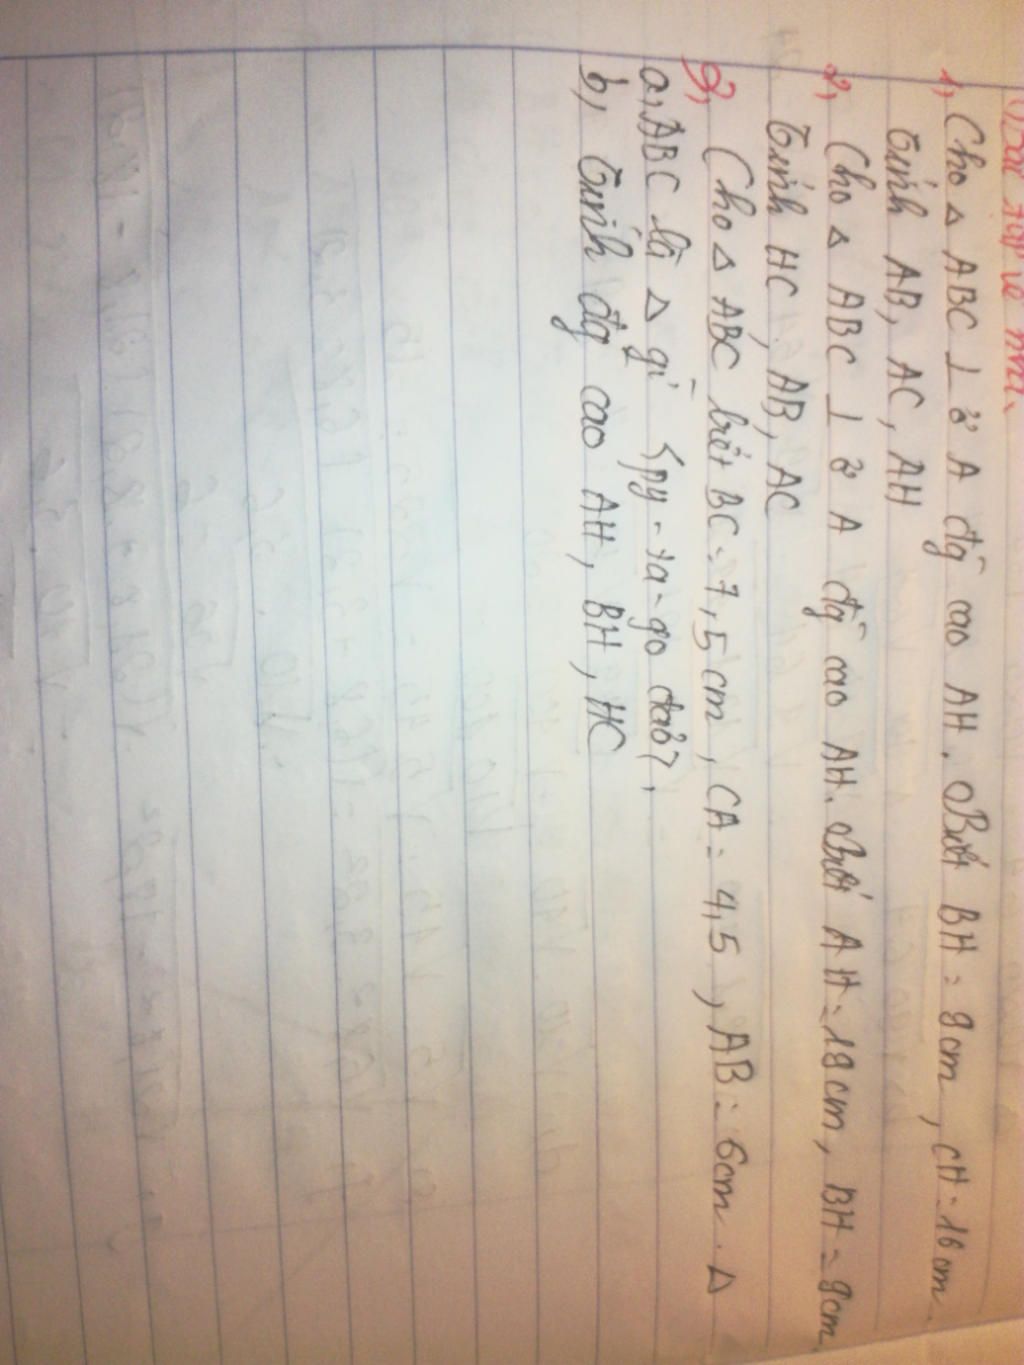 Bài tập về nhà.
1, Cho △ ABC ⊥ ở A đg̃ cao AH. Biết BH = 9cm, CH = 16cm.
Tính AB, AC, AH
2, Cho △ ABC ⊥ ở A đg̃ cao AH. Biết AH = 18cm, BH = 9cm
Tính HC, AB, AC
3, Cho △ ABC biết BC = 7,5cm, CA = 4,5, AB = 6cm. △
a, ABC là △ gì {py-ta-go đảo?.
b, Tính đg̃ cao AH, BH, HC